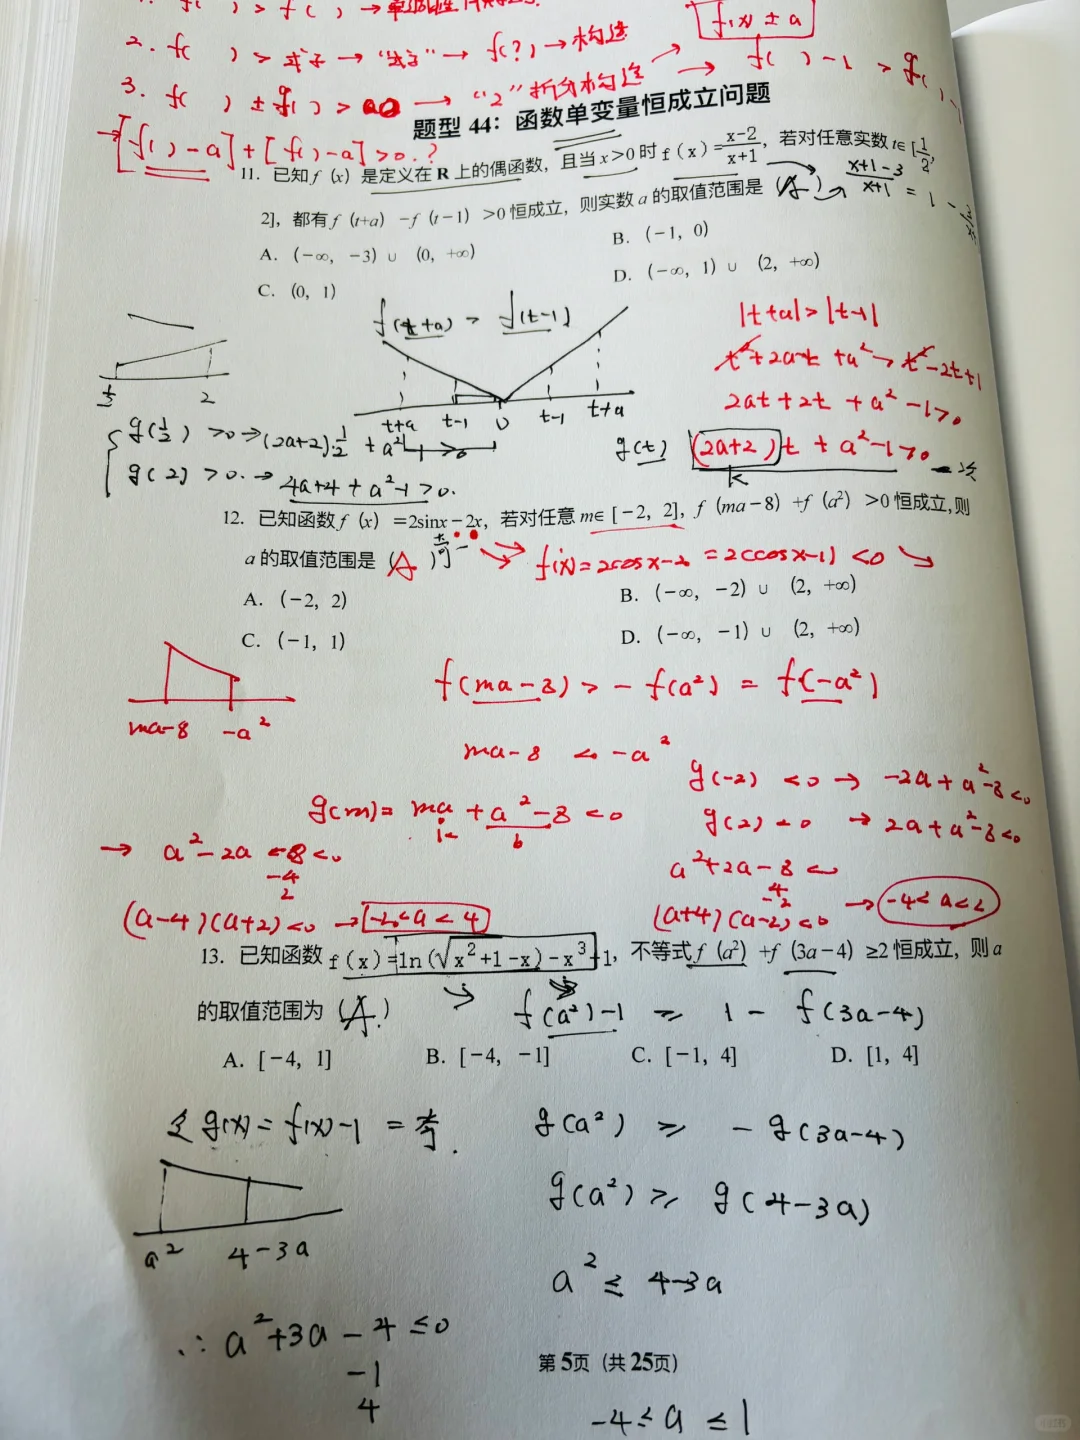 1. f( ) > f( ) →
2. f( ) > 式子 → "式子" → f(?) → 构造
f(x) ± a
3. f( ) ± f( ) > a → "2" 拆分构造 → f( ) - 1 > g(
→ [f( ) - a] + [f( ) - a] > 0. ?
题型 44：函数单变量恒成立问题
11. 已知 f (x) 是定义在 R 上的偶函数，且当 x>0 时 f(x)=\frac{x-2}{x+1}，若对任意实数 t∈[\frac{1}{2},
2]，都有 f (t+a) －f (t－1) >0 恒成立，则实数 a 的取值范围是 (A)
\frac{x+1-3}{x+1} = 1 -
A. (－∞, －3) ∪ (0, +∞)
B. (－1, 0)
C. (0, 1)
D. (－∞, 1) ∪ (2, +∞)
f(t+a) > f(t-1)
|t+a| > |t-1|
t²+2at+a² > t²-2t+1
2at+2t+a²-1>0
½ 2
t+a t-1 0 t-1 t+a
g(½) >0 → (2a+2)·½ + a²-1>0
g(t) (2a+2)t + a²-1>0 一次
k
g(2) >0. → 4a+4+a²-1>0.
12. 已知函数 f (x) =2sinx－2x，若对任意 m∈[－2, 2]，f (ma－8) +f (a²) >0 恒成立,则
a 的取值范围是 (A)
奇 f'(x)=2cosx-2 =2(cosx-1) <0 ↘
A. (－2, 2)
B. (－∞, －2) ∪ (2, +∞)
C. (－1, 1)
D. (－∞, －1) ∪ (2, +∞)
f(ma-8) > -f(a²) = f(-a²)
ma-8 -a²
ma-8 < -a²
g(-2) <0 → -2a+a²-8<0
g(m)= ma + a²-8 <0
k b
g(2) <0 → 2a+a²-8<0
→ a²-2a-8<0
-4
2
a²+2a-8<0
4
-2
(a-4)(a+2)<0 → -2<a<4
(a+4)(a-2)<0 → -4<a<2
13. 已知函数 f(x)=ln(√x²+1-x)-x³+1，不等式 f (a²) +f (3a－4) ≥2 恒成立，则 a
的取值范围为 (A.)
f(a²)-1 ≥ 1 - f(3a-4)
A. [－4, 1]
B. [－4, －1]
C. [－1, 4]
D. [1, 4]
令 g(x) = f(x)-1 = 奇.
g(a²) ≥ -g(3a-4)
g(a²) ≥ g(4-3a)
a² 4-3a
a² ≤ 4-3a
∴ a²+3a-4≤0
-1
4
第 5页 (共 25页)
-4≤a≤1